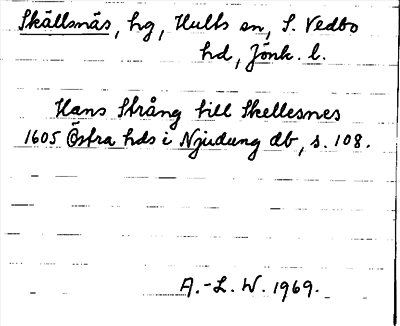 Skällsnäs, hg, Hults sn, S. Vedbo
hd, Jönk. l.
Hans Strång till Skellesnes
1605 Östra hds i Njudung db, s. 108.
A.-L. W. 1969.